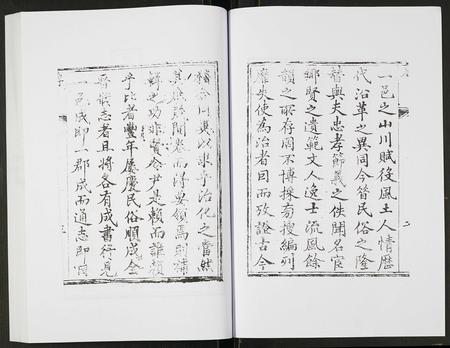 一邑之山川賦役風土人情歷
代沿革之異同今昔民俗之隆
替與夫忠孝節義之佚聞名宦
鄉賢之遺範文人逸士流風餘
韻之所存周不博採旁搜編列
靡失使為治者因而攷證古今
二
以求乎治化之當然
其庶幾開卷而得其領焉則補
輯之功非賢令尹是賴而誰賴
乎比者豐年屢慶民俗順成全
晉嵗志者且將各有成書行見
一邑成即一郡成而通志即
三